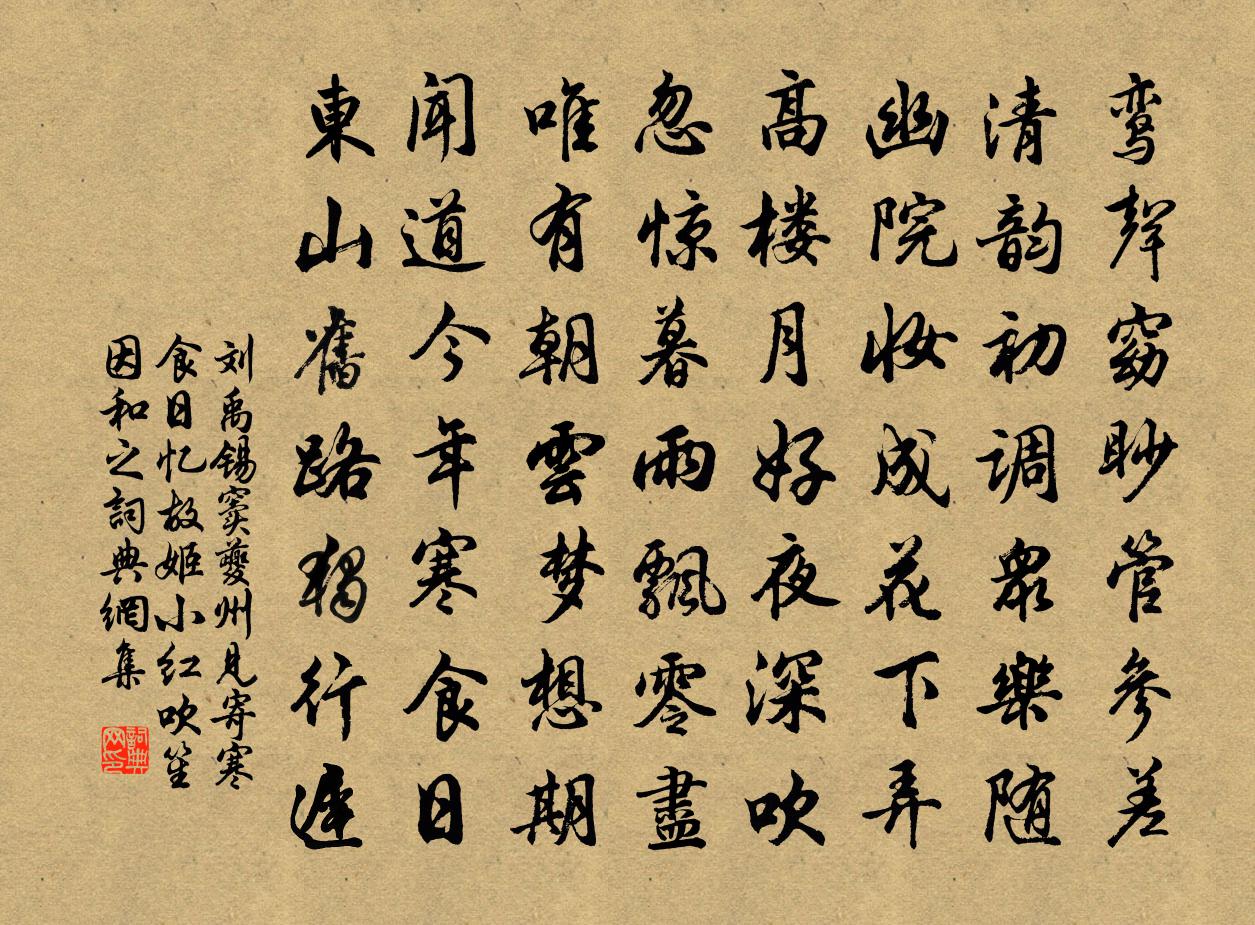 鸾聲窈眇管參差
清韵初調衆樂随
幽院妆成花下弄
高楼月好夜深吹
忽惊暮雨飄零盡
唯有朝雲梦想期
闻道今年寒食日
東山舊路獨行遲
刘禹锡窦夔州見寄寒
食日忆故姬小红吹笙
因和之詞典網集
詞典
网印